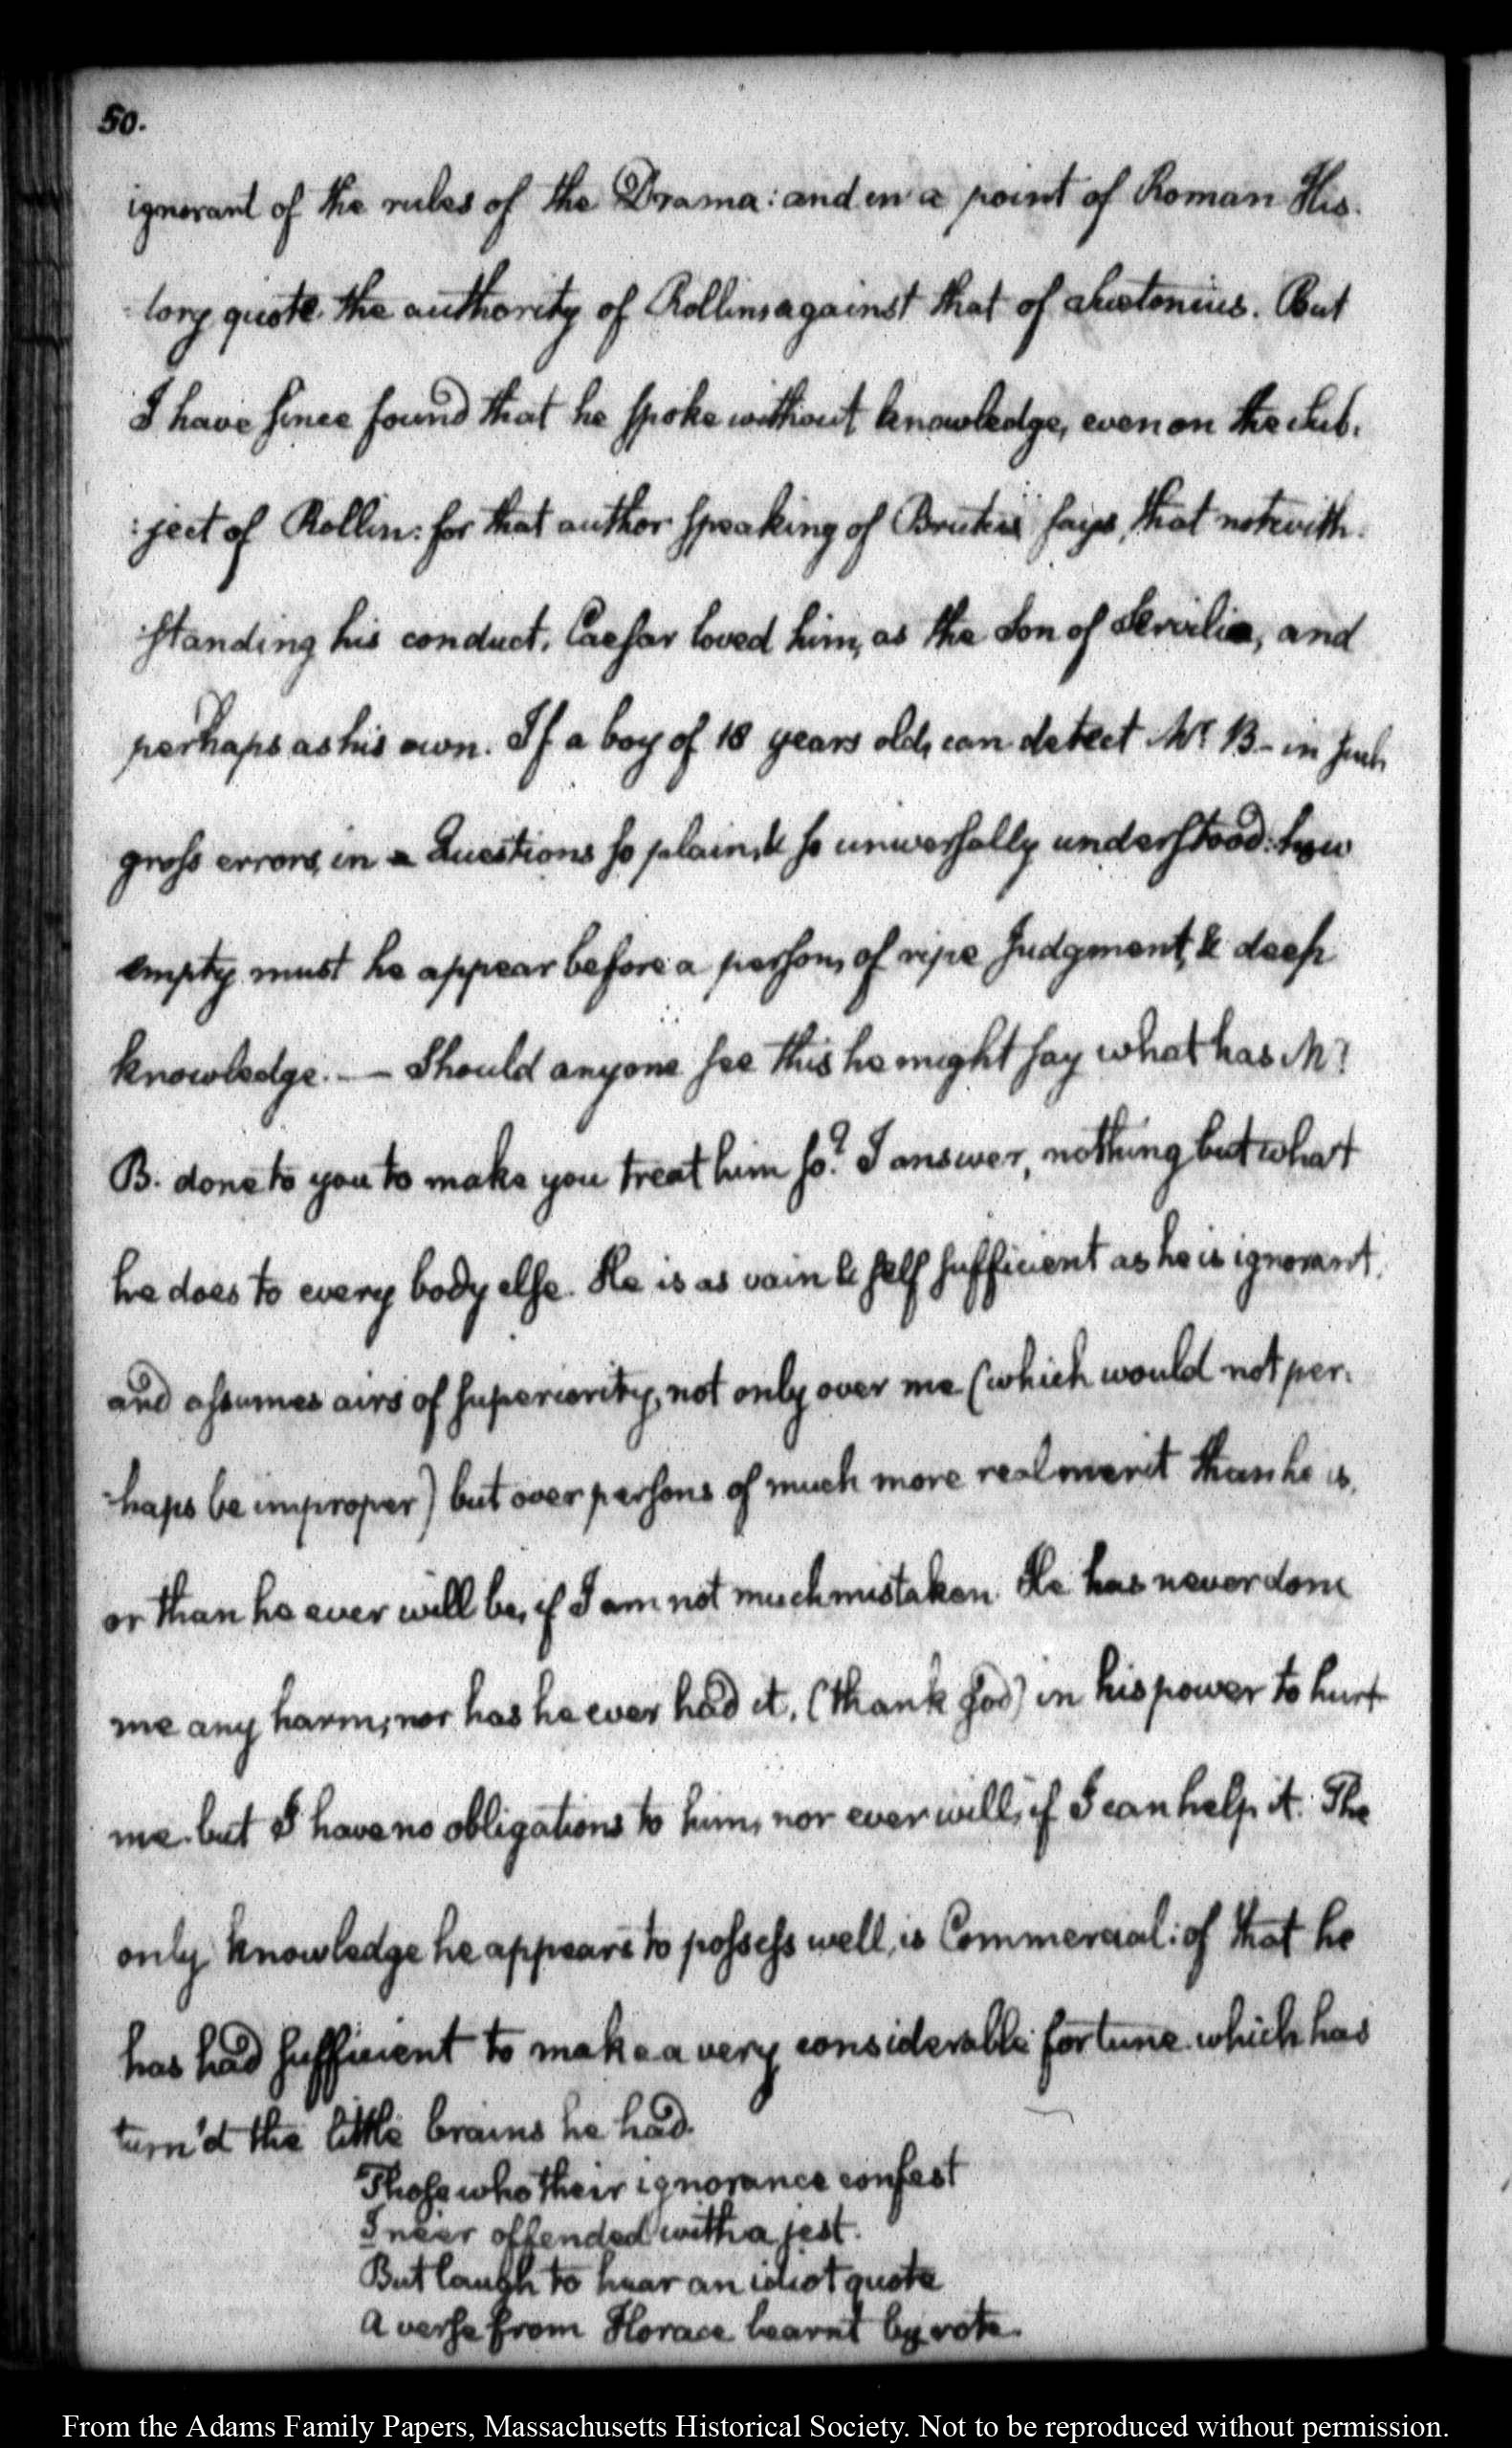 50.
ignorant of the rules of the Drama: and on a point of Roman His.
tory quote the authority of Rollins against that of Suetonius. But
I have since found that he spoke without knowledge, even on the Sub.
:ject of Rollin: for that author speaking of Brutus says, that notwith.
standing his conduct, Caesar loved him, as the Son of Servilia, and
perhaps as his own. If a boy of 18 years old, can detect Mr. B- in such
gross errors, in Questions so plain, & so universally understood: how
empty must he appear before a person, of ripe Judgment, & deep
knowledge. — Should anyone see this he might say what has Mr.
B. done to you to make you treat him so? I answer, nothing but what
he does to every body else. He is as vain & self sufficient as he is ignorant,
and assumes airs of superiority, not only over me (which would not per.
-haps be improper) but over persons of much more real merit than he is,
or than he ever will be, if I am not much mistaken. He has never done
me any harm; nor has he ever had it, (thank God) in his power to hurt
me. but I have no obligations to him, nor ever will, if I can help it. The
only knowledge he appears to possess well, is Commercial: of that he
has had sufficient to make a very considerable fortune which has
turn'd the little brains he had.
Those who their ignorance confest
I ne'er offended with a jest.
But laugh to hear an idiot quote
A verse from Horace learnt by rote.
From the Adams Family Papers, Massachusetts Historical Society. Not to be reproduced without permission.